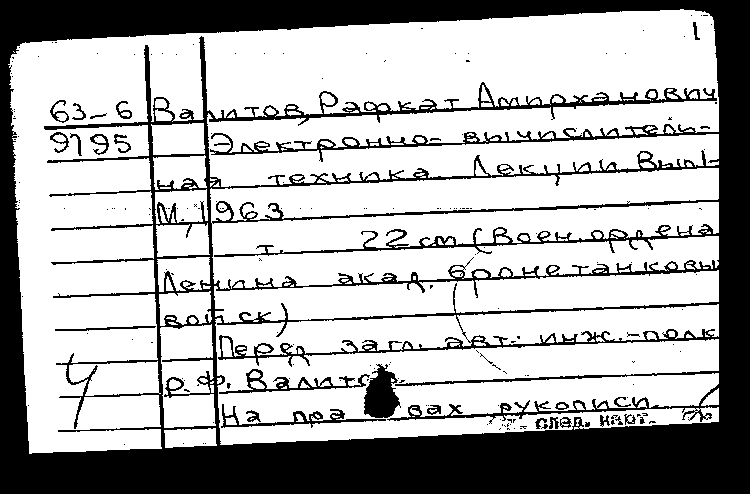 1
63-6 Валитов, Рафкат Амирханович
9795 Электронно-вычислитель-
ная техника. Лекции. Вып 1-
М., 1963
т. 22 cm (Воен. ордена
Ленина акад. бронетанковы
войск)
Перед загл. авт.: инж.-полк
Р.Ф. Валитов.
На пра вах рукописи.
След. карт.